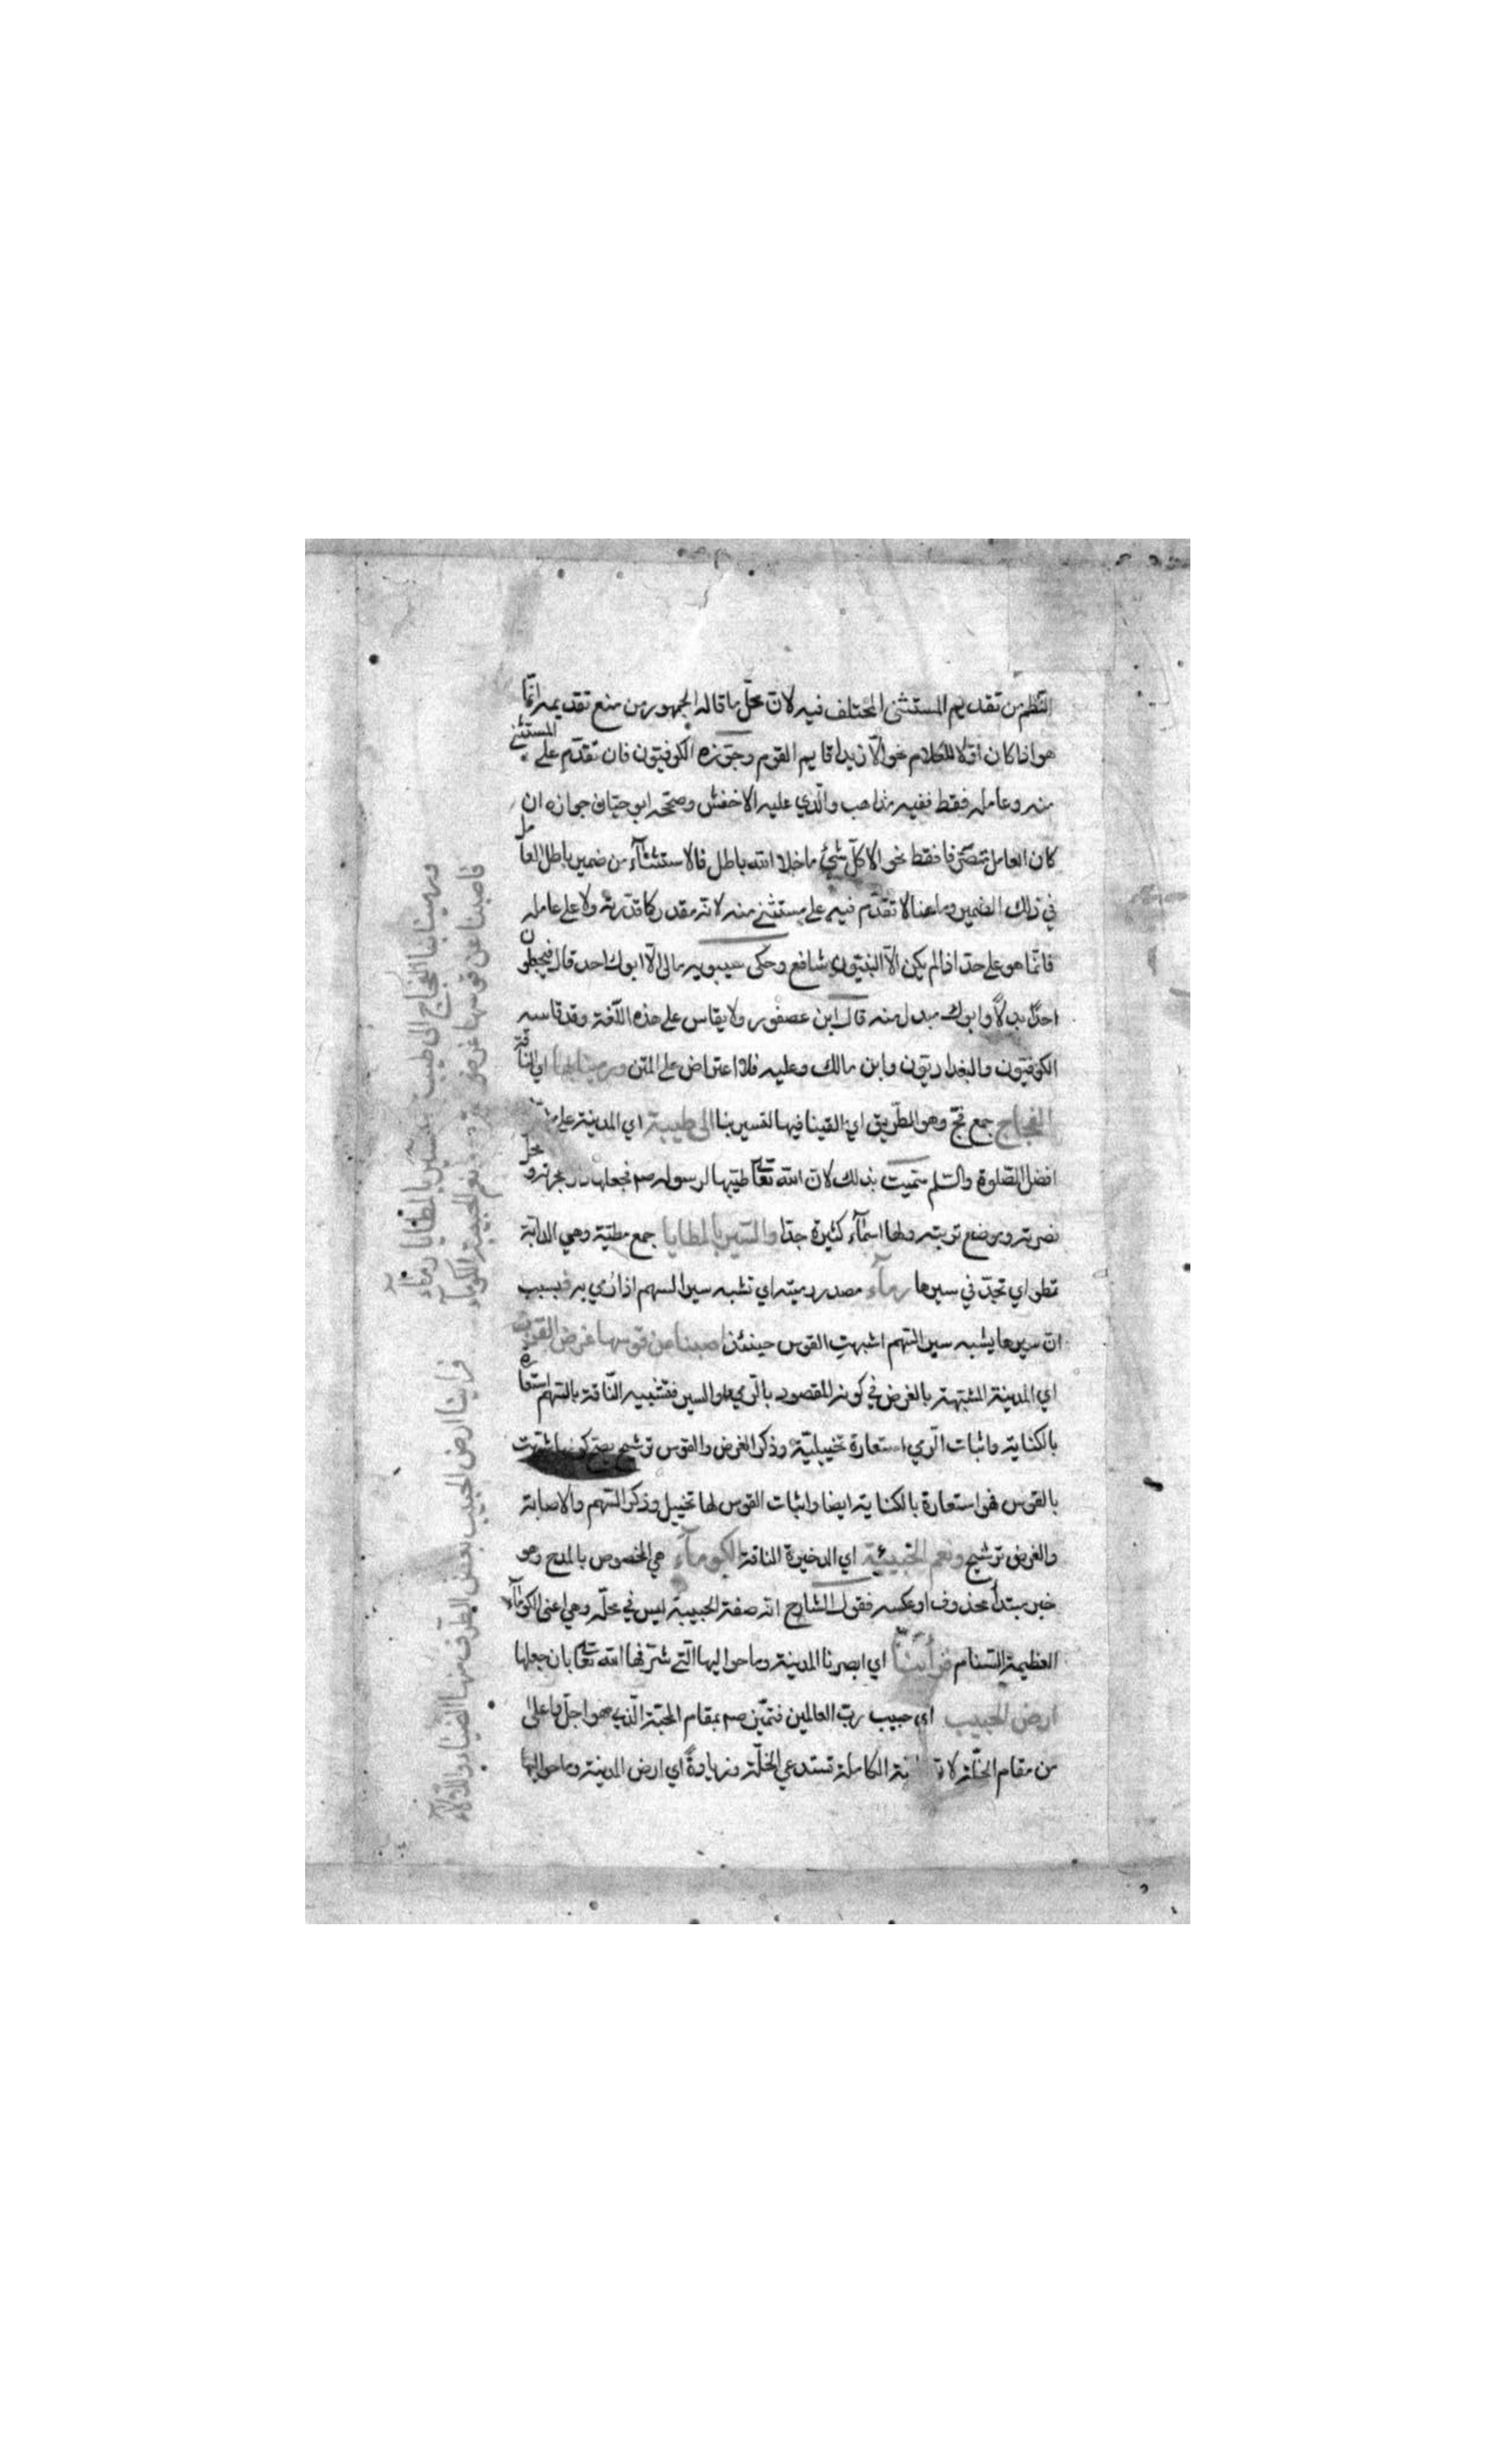 النظم من تقديم المستثنى المختلف فيه لان محلّ ما قاله الجمهور من منع تقديمه انما
هو اذا كان اوّلا للكلام نحو الّا زيدا قايم القوم وجوّزه الكوفيّون فان تقدّم على المستثنى
منه وعامله فقط ففيه مذاهب والّذي عليه الاخفش وصحّحه ابو حيّان جوازه ان
كان العامل متصرّفا فقط نحو الا كلّ شئ ما خلا الله باطل فالاستثنآء من ضمير باطل العامل
في ذلك الضمير وما هنا لا تقدّم فيه على مستثنى منه لانه مقدر كما قدّرته ولا على عامله
فانّما هو على حدّ اذا لم يكن الّا النبيّون شافع وحكى سيبويه مالى الّا ابوك احد قال فيجعلون
احدًا بدلًا وابوك مبدل منه قال ابن عصفور ولا يقاس على هذه اللّغة وقد قاسه
الكوفيّون والبغداديّون وابن مالك وعليه فلا اعتراض على المتن ورمينا بها اي الناقة
الفجاج جمع فجّ وهو الطّريق اي القينا فيها لتسير بنا الى طيبة اي المدينة على
افضل الصّلوة والسّلم سمّيت بذلك لان الله تعا طيّبها لرسوله صم فجعلها مهجرته ومحل
نصرته وموضع تربته ولها اسمآء كثيرة جدّا والسير بالمطايا جمع مطيّة وهي الدابّة
تمطو اي تجدّ في سيرها رمآء مصدر رميته اي تشبه سير السهم اذا رُمي به فبسبب
انّ سيرها يشبه سير السّهم اشبهت القوس حينئذ اصبنا من قوسها غرض القرب
اي المدينة المشبّهة بالغرض في كونه المقصود بالرّمي والسير فتشبيه النّاقة بالسّهم استعارة
بالكناية واثبات الرّمي استعارة تخييليّة وذكر الغرض والقوس ترشيح يصح كونها شبّهت
بالقوس فهو استعارة بالكناية ايضا واثبات القوس لها تخييل وذكر السّهم والاصابة
والغرض ترشيح ونعم الخبيئة اي الدخيرة الناقة الكومآء هي المخصوص بالمدح وهو
خبر مبتدأ محذوف او عكسه فقول الشارح انّه صفة الخبيئة ليس في محلّه وهي اعنى الكومآء
العظيمة السنام فرأينا اي ابصرنا المدينة وما حواليها الّتي شرّفها الله تعا بان جعلها
ارض الحبيب اي حبيب ربّ العالمين فتميّز صم بمقام المحبّة الّذي هو اجلّ واعلى
من مقام الخلّة لان الكاملة تستدعي الخلّة وزيادةً اي ارض المدينة وما حواليها
ورمينا بها الفجاج الى طيبة بسير بالمطايا رمآء
فاصبنا عن قوسها غرض القرب ونعم الخبيئة الكومآء
فراينا ارض الحبيب يغض الطّرف منها الضياء واللألآء